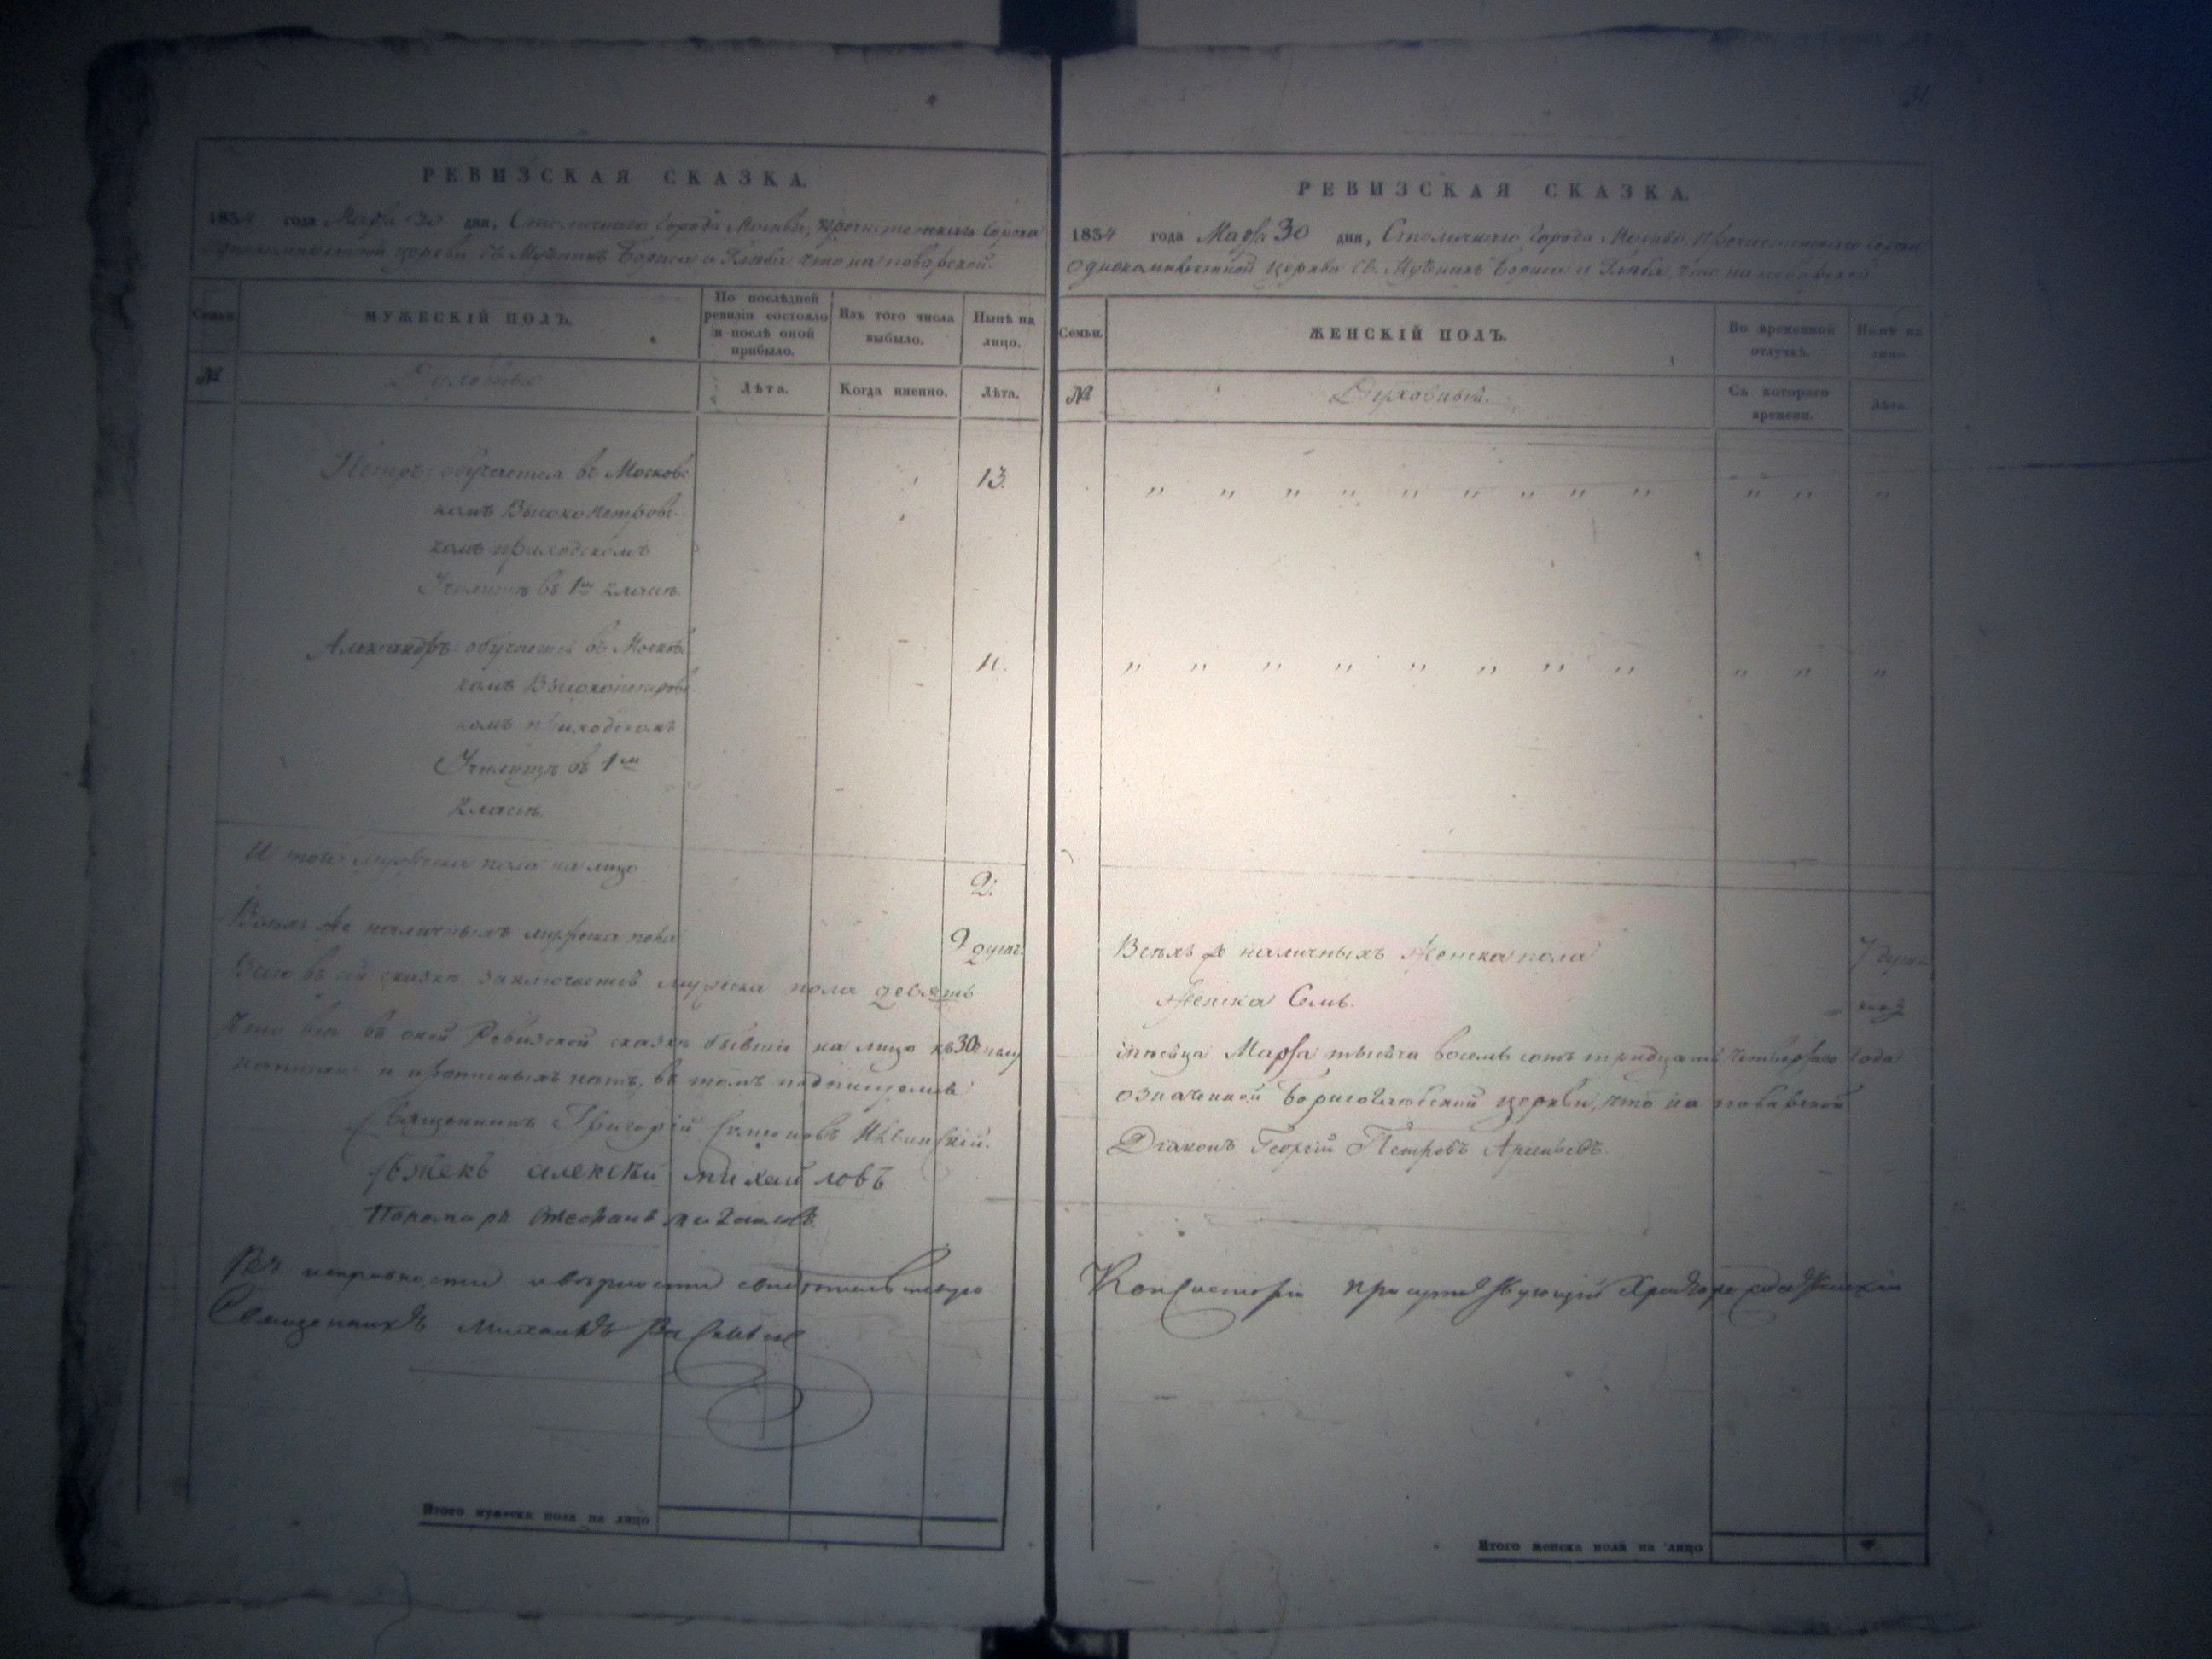 РЕВИЗСКАЯ СКАЗКА.
1834 года Марта 30 дня, Столичнаго Города Москвы, Пречистенскаго Сорока
Однокомплектной церкви Св. Мученикъ Бориса и Глеба что на поварской.
Семьи.
МУЖЕСКІЙ ПОЛЪ.
По послѣдней ревизіи состояло и послѣ оной прибыло.
Изъ того числа выбыло.
Нынѣ на лицо.
№
Лѣта.
Когда именно.
Лѣта.
Петръ: обучается въ Московс
комъ Высокопетровс
комъ приходскомъ
Училищѣ въ 1мъ классѣ.
13.
Александръ: обучается въ Московс
комъ Высокопетровс
комъ приходскомъ
Училищѣ въ 1мъ
классѣ.
11.
Итого мужеска пола на лицо
2.
Всѣхъ же наличныхъ мужеска пола
9 душъ.
Всего въ сей сказкѣ заключается мужеска пола девять
Что въ оной Ревизской сказкѣ бывши на лицо къ 30
и пропсныхъ нетъ, въ томъ подписуемся
Священникъ Григорій Симеоновъ
алексѣй михайловъ
Пономарь Стефанъ
Въ исправности и вѣрности свидѣтельствую
Священникъ Михаилъ
РЕВИЗСКАЯ СКАЗКА.
1834 года Марта 30 дня, Столичнаго Города Москвы, Пречистенскаго Сорока
Однокомплектной церкви Св. Мученикъ Бориса и Глеба, что на поварской
Семьи.
ЖЕНСКІЙ ПОЛЪ.
Во временной отлучкѣ.
Нынѣ на лицо.
№
Духовный.
Съ котораго времени.
Лѣта.
" " " " " " " " " " " "
" " " " " " " " " " "
Всѣхъ же наличныхъ Женска пола
7 душъ
Женска Семь.
Марта тысяча восемь сотъ тридцать четвертаго Года
означенной Борисоглебской церкви, что на поварской
Діаконъ Георгій Петровъ
Консисторіи присутствующій
Итого мужеска пола на лицо
Итого женска пола на лицо